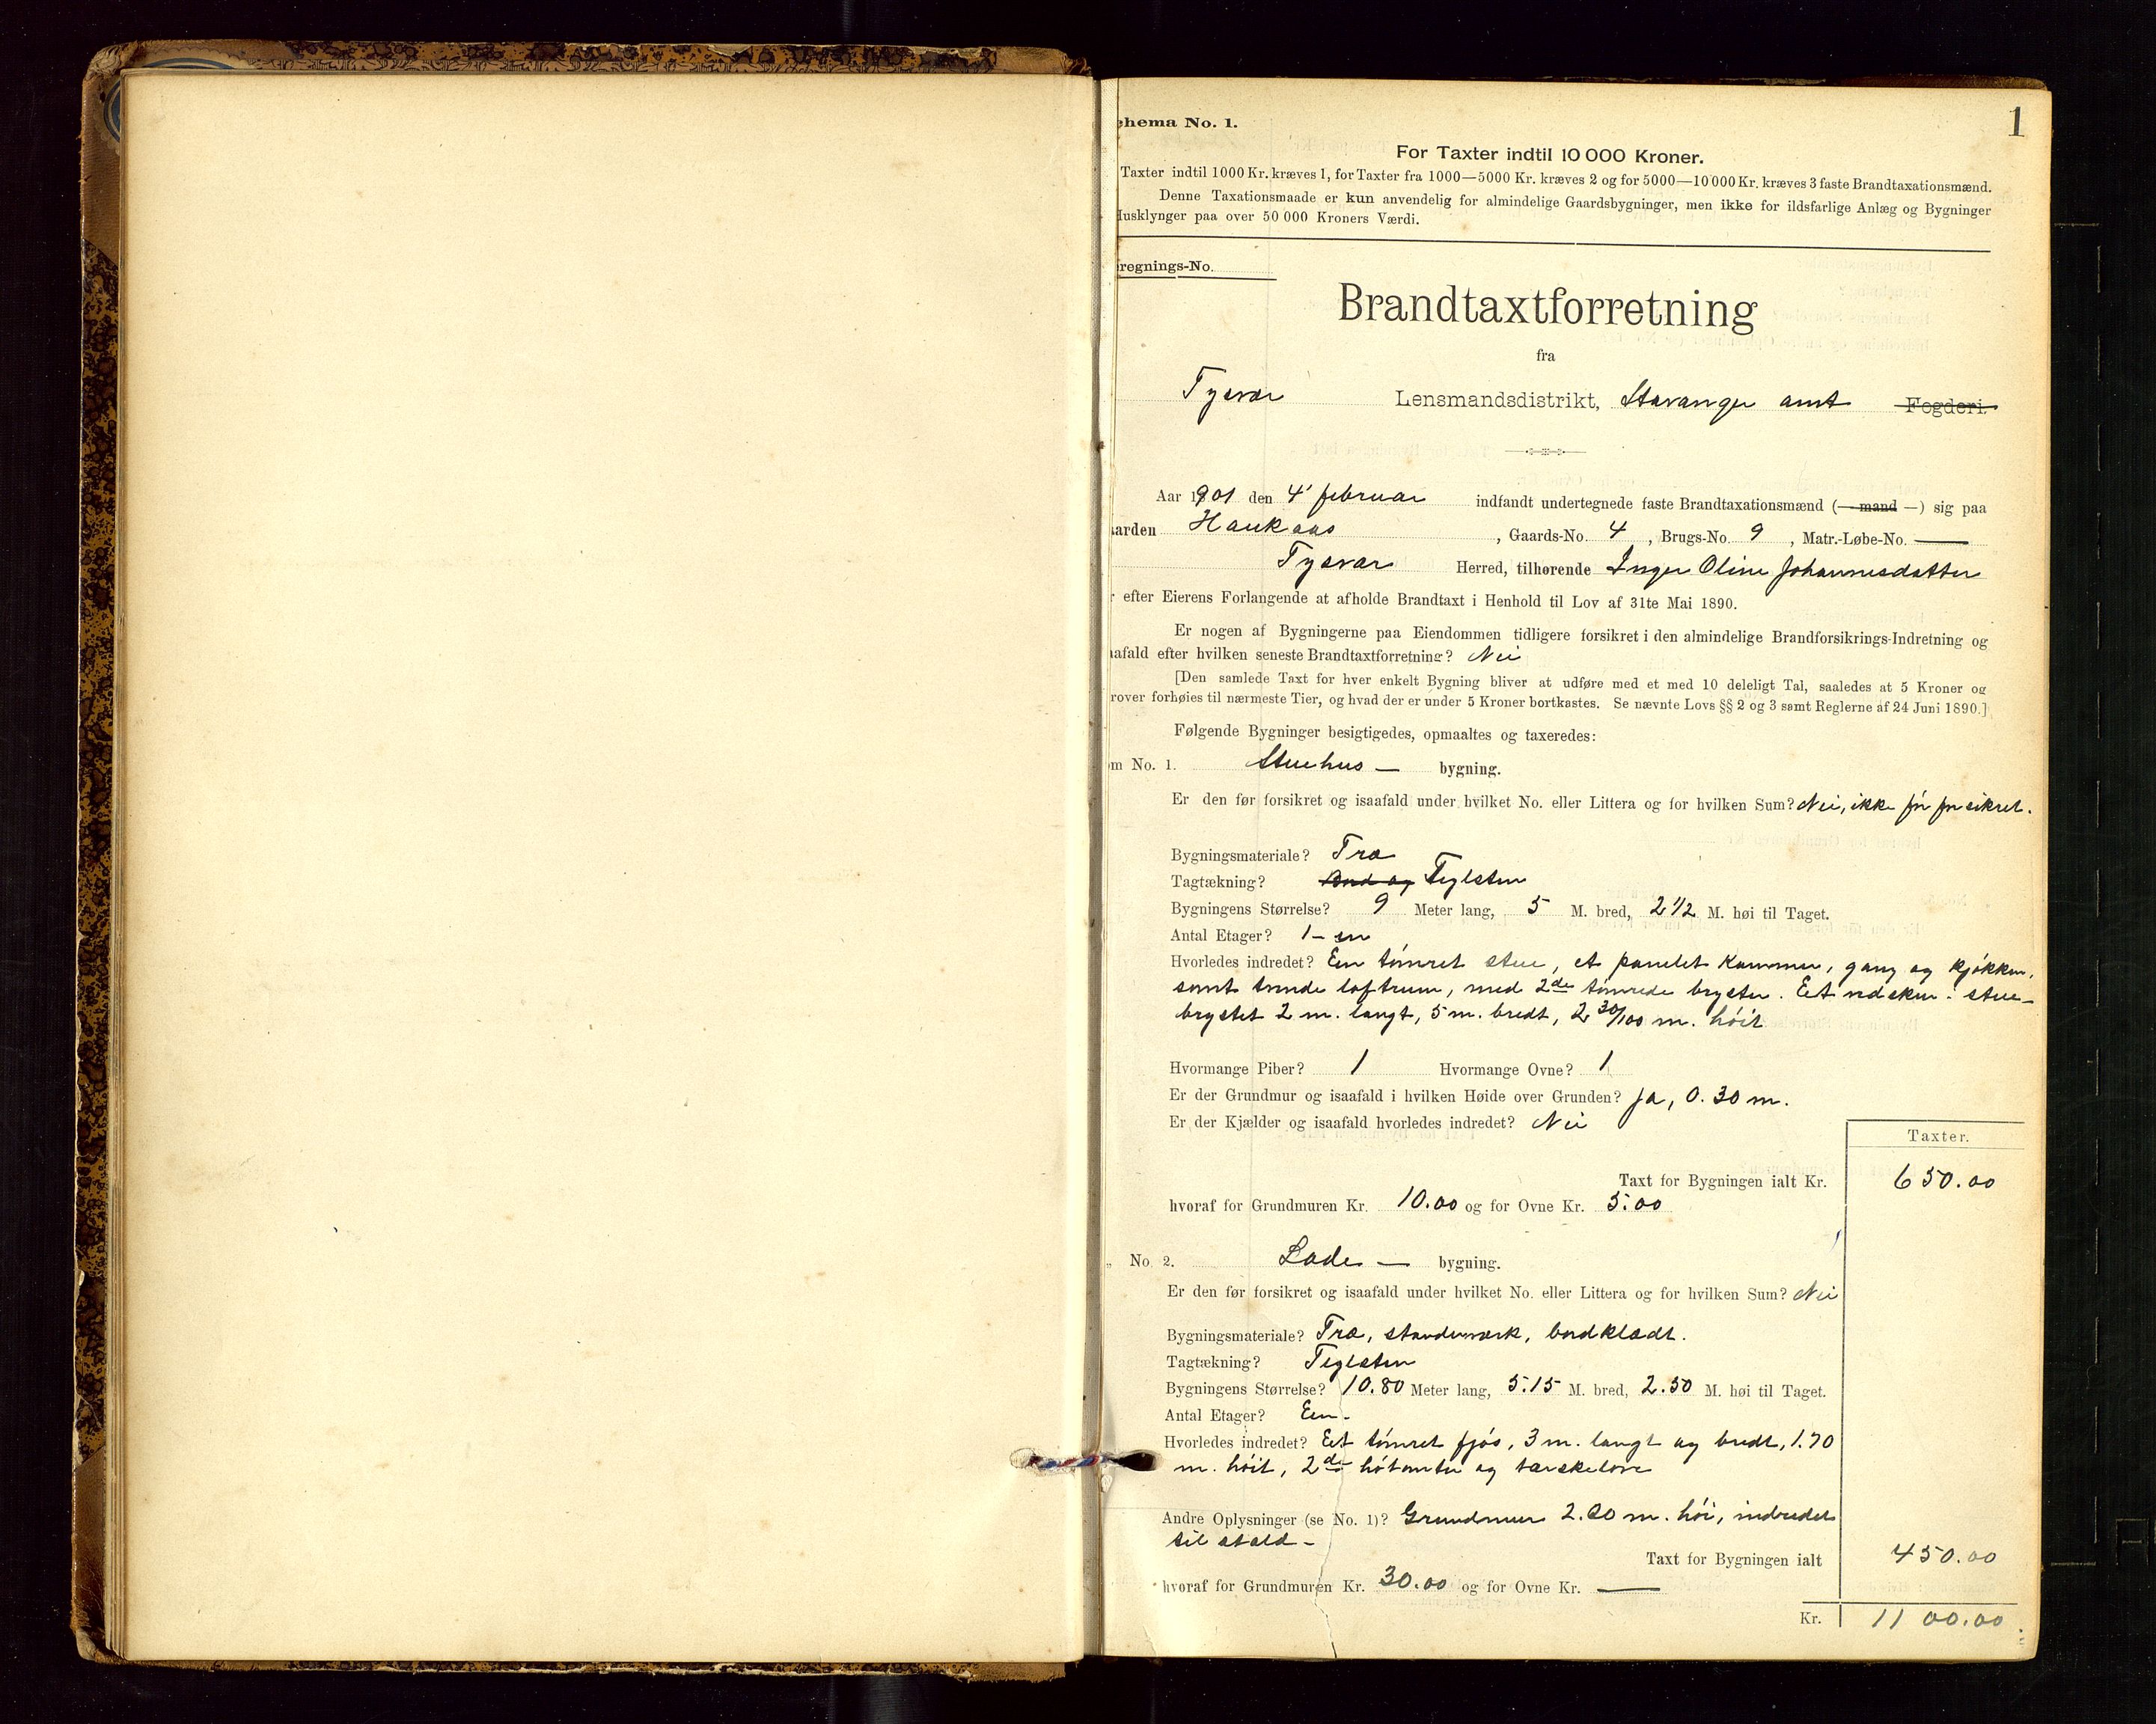 1
chema No. 1.
For Taxter indtil 10 000 Kroner.
Taxter indtil 1000 Kr. kræves 1, for Taxter fra 1000—5000 Kr. kræves 2 og for 5000—10 000 Kr. kræves 3 faste Brandtaxationsmænd.
Denne Taxationsmaade er kun anvendelig for almindelige Gaardsbygninger, men ikke for ildsfarlige Anlæg og Bygninger
Husklynger paa over 50 000 Kroners Værdi.
regnings-No.
Brandtaxtforretning
fra
Tysvær Lensmandsdistrikt, Stavanger amt Fogderi.
Aar 1901 den 4' februar indfandt undertegnede faste Brandtaxationsmænd (— mand —) sig paa
arden Haukaas, Gaards-No. 4, Brugs-No. 9, Matr.-Løbe-No. —
Tysvær Herred, tilhørende Inger Oline Johannesdatter
r efter Eierens Forlangende at afholde Brandtaxt i Henhold til Lov af 31te Mai 1890.
Er nogen af Bygningerne paa Eiendommen tidligere forsikret i den almindelige Brandforsikrings-Indretning og
aafald efter hvilken seneste Brandtaxtforretning? Nei
[Den samlede Taxt for hver enkelt Bygning bliver at udføre med et med 10 deleligt Tal, saaledes at 5 Kroner og
rover forhøies til nærmeste Tier, og hvad der er under 5 Kroner bortkastes. Se nævnte Lovs §§ 2 og 3 samt Reglerne af 24 Juni 1890.]
Følgende Bygninger besigtigedes, opmaaltes og taxeredes:
om No. 1. Stuehus — bygning.
Er den før forsikret og isaafald under hvilket No. eller Littera og for hvilken Sum? Nei, ikke før forsikret.
Bygningsmateriale? Træ
Tagtækning? Bord og Teglsten
Bygningens Størrelse? 9 Meter lang, 5 M. bred, 2 1/2 M. høi til Taget.
Antal Etager? 1 – en
Hvorledes indredet? Een tømret stue, et panelet Kammer, gang og kjøkken,
samt tvende loftrum, med 2de tømrede bryster. Eet udskur i stue-
brystet 2 m. langt, 5 m. bredt, 2 30/100 m. høit
Hvormange Piber? 1 Hvormange Ovne? 1
Er der Grundmur og isaafald i hvilken Høide over Grunden? Ja, 0.30 m.
Er der Kjælder og isaafald hvorledes indredet? Nei
Taxter.
Taxt for Bygningen ialt Kr. 650.00
hvoraf for Grundmuren Kr. 10.00 og for Ovne Kr. 5.00
„ No. 2. Lade — bygning.
Er den før forsikret og isaafald under hvilket No. eller Littera og for hvilken Sum? Nei
Bygningsmateriale? Træ, standerværk, bordklædt.
Tagtækning? Teglsten
Bygningens Størrelse? 10.80 Meter lang, 5.15 M. bred, 2.50 M. høi til Taget.
Antal Etager? Een.
Hvorledes indredet? Eet tømret fjøs, 3 m. langt og bredt, 1.70
m. høit, 2de høtomter og tærskelove
Andre Oplysninger (se No. 1)? Grundmur 2.00 m. høi, indredet
til stald –
Taxt for Bygningen ialt 450.00
hvoraf for Grundmuren Kr. 30.00 og for Ovne Kr. —
Kr. 1100.00